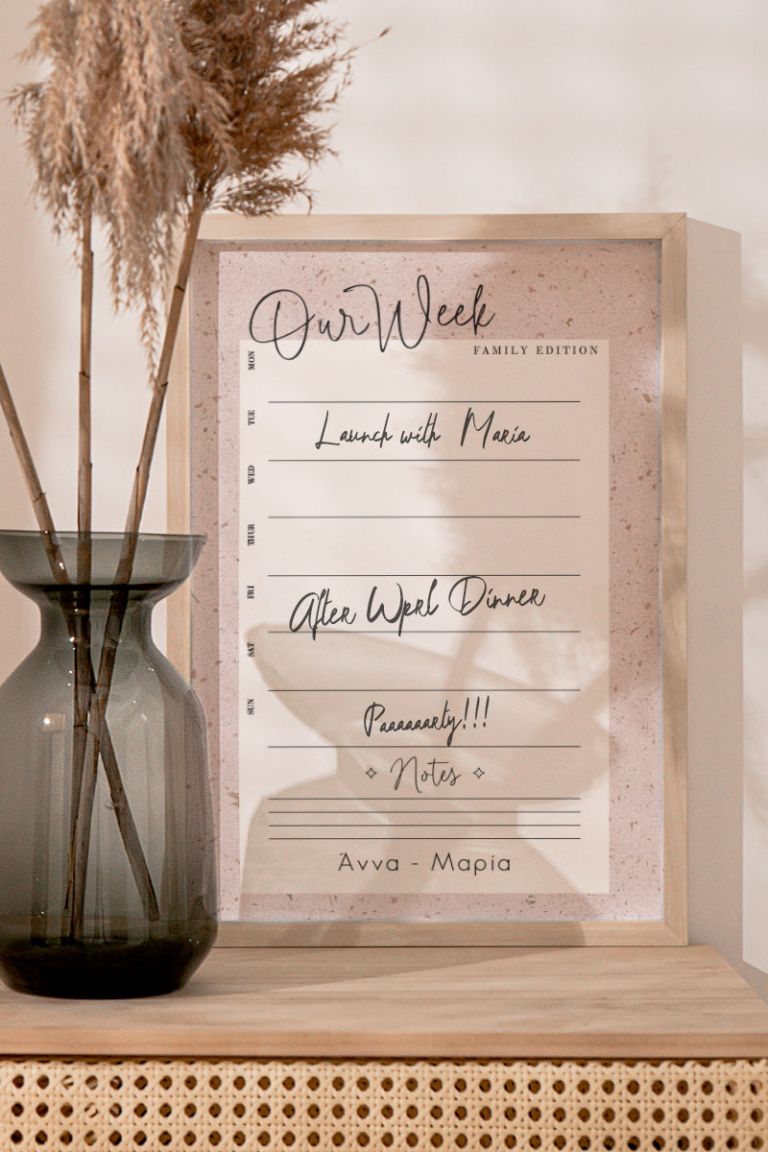 Our Week
FAMILY EDITION
MON
TUE
Launch with Maria
WED
THUR
FRI
After Wprl Dinner
SAT
SUN
Paaaaaarty!!!
Notes
Άννα - Μαρία